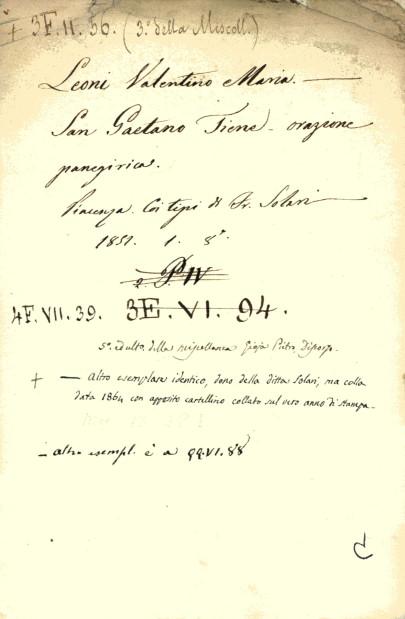 + 3F.II.56. (3.º della Miscell.)
Leoni Valentino Maria. —
San Gaetano Tiene - orazione
panegirica.
Piacenza. Coi tipi di Fr. Solari —
1851. 1. 8º.
P. IV
4F.VII.39. 3E.VI.94.
5º ed ulto. della miscellanea Gioja Pietro
+ — Altro esemplare identico, dono della ditta Solari, ma colla
data 1864 con apposito cartellino collato sul vero anno di stampa -
- altro esempl. è a QQ.VI.88